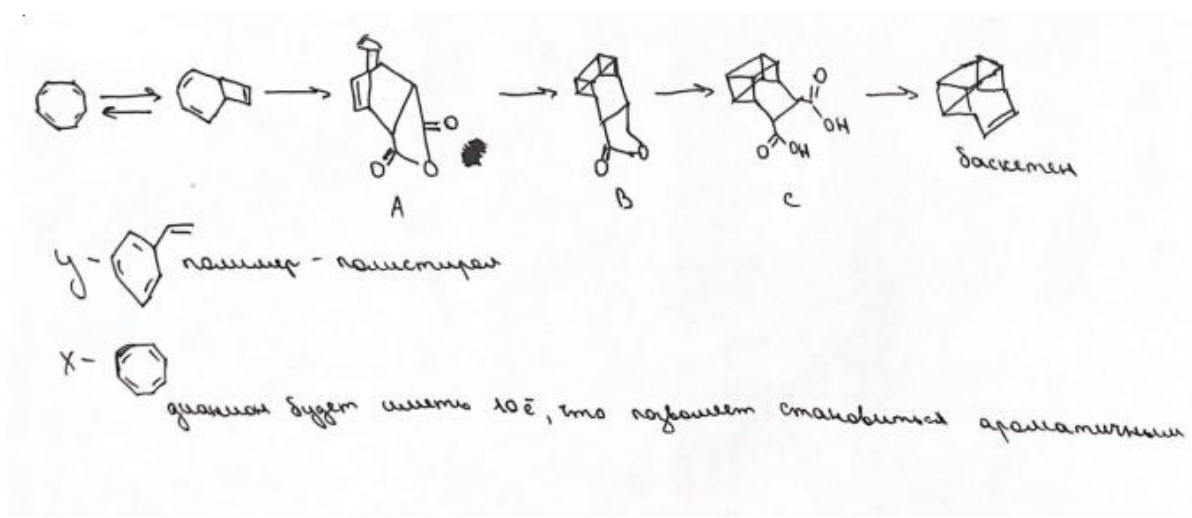 O
O
O
A
O
O
B
O
OH
O
OH
C
баскетен
Y - полимер - полистирол
X -
дианион будет иметь 10ē, что позволяет становиться ароматичным